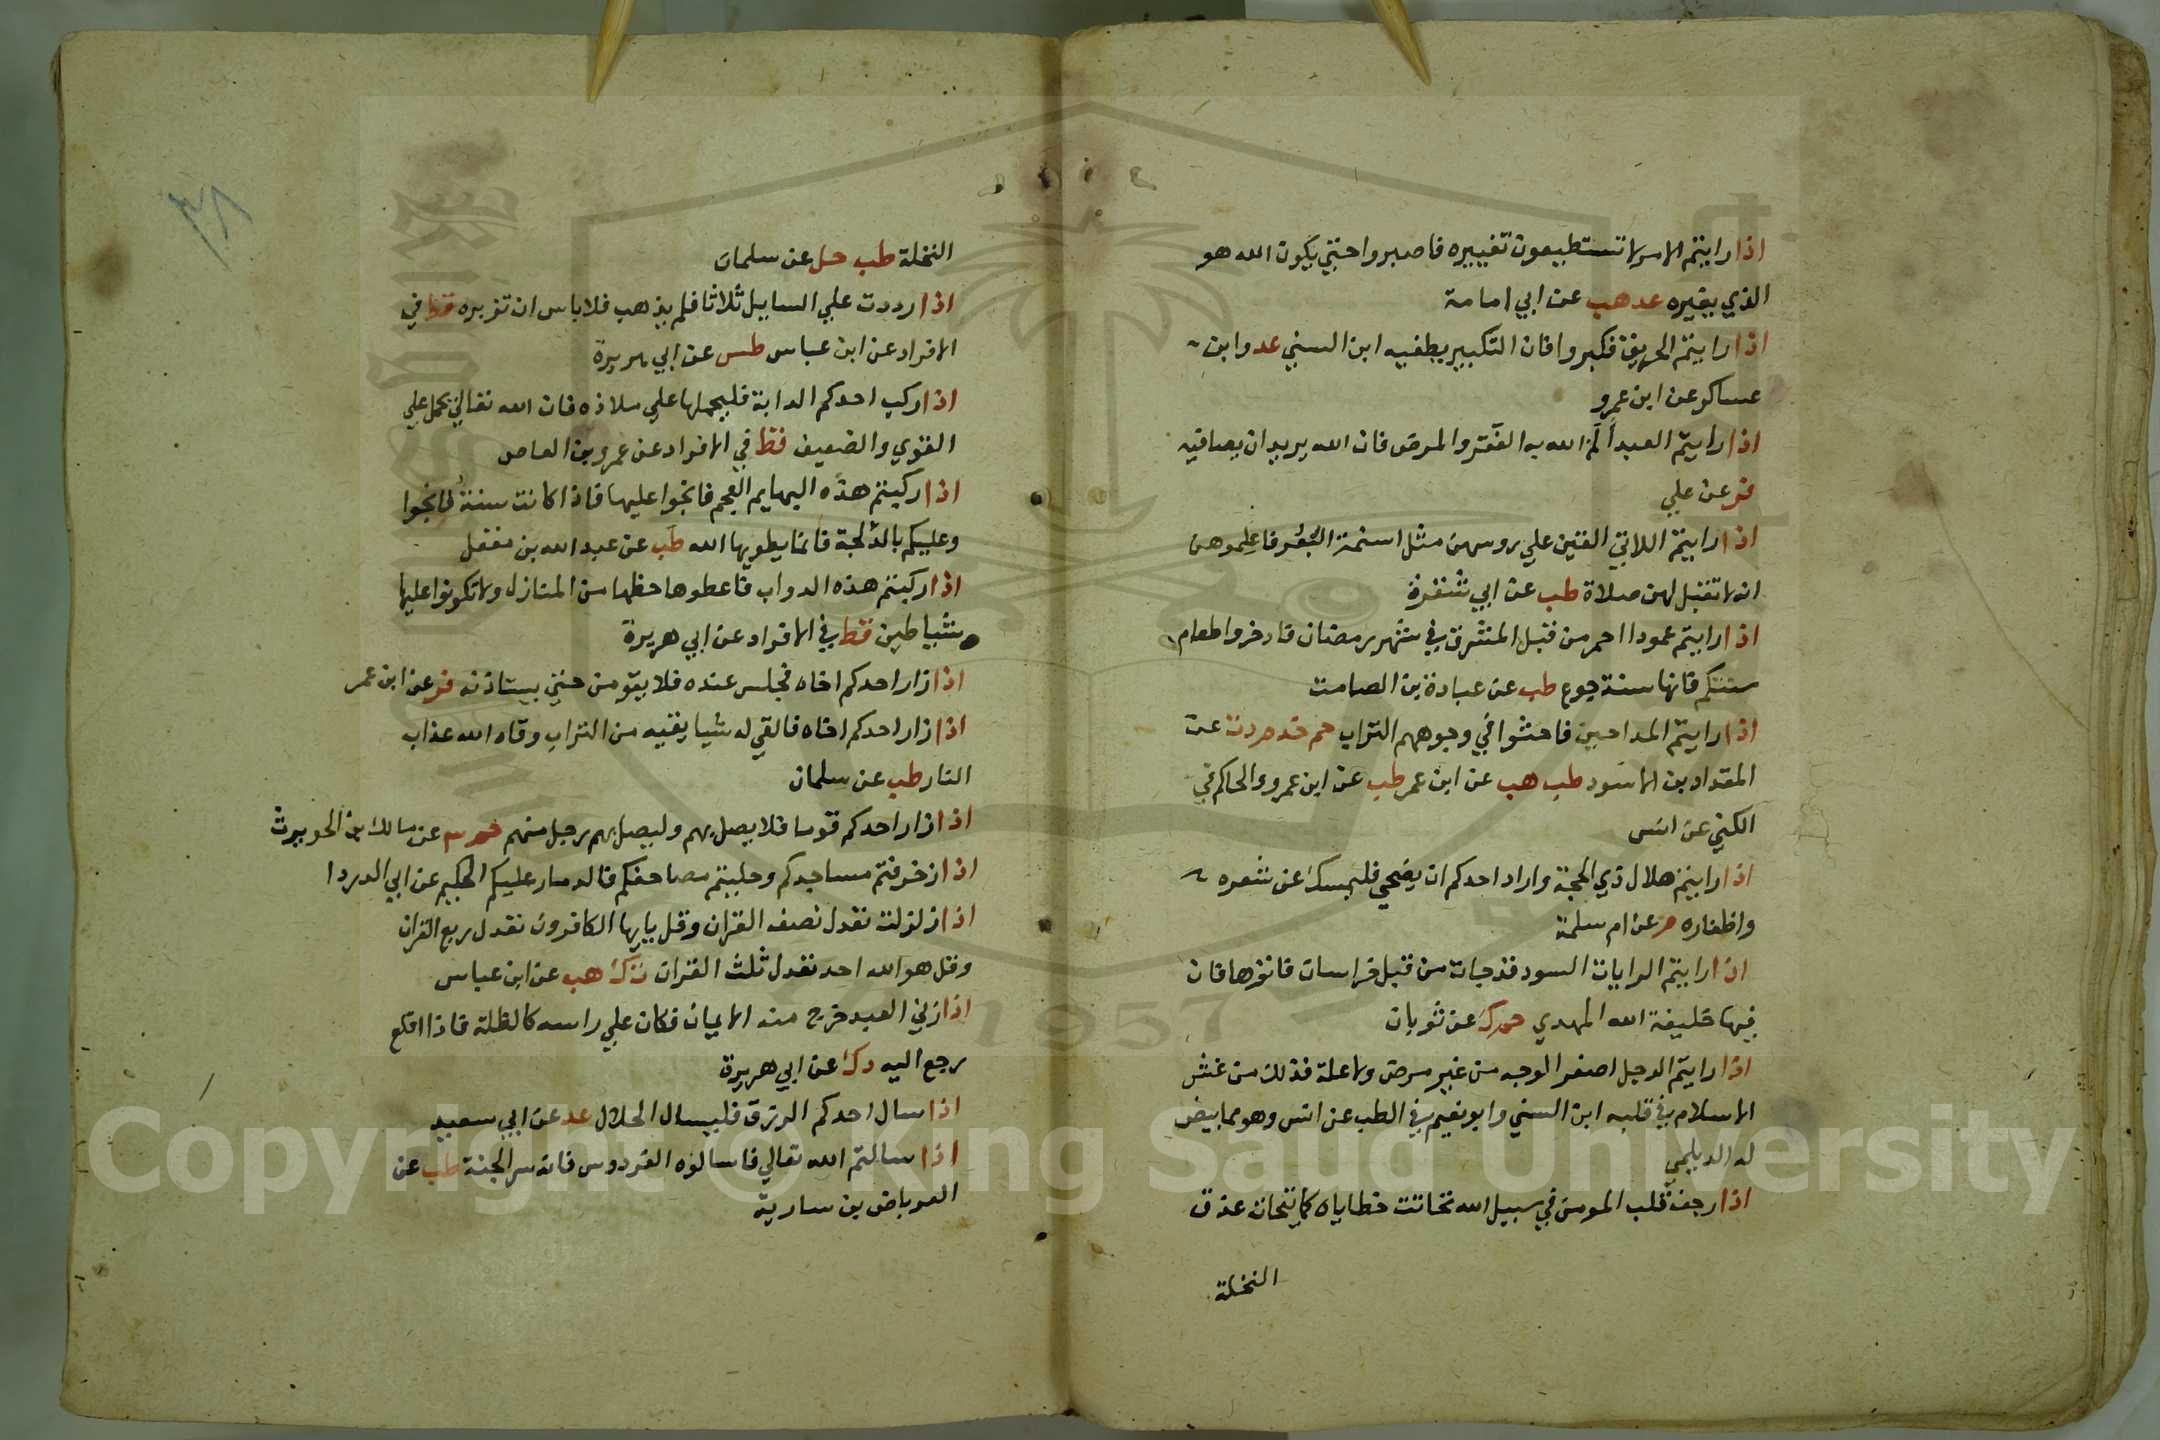 اذا رايتم الامر لا تستطيعون تغييره فاصبروا حتي يكون الله هو
الذي يغيره عد هب عن ابي امامة
اذا رايتم الحريق فكبروا فان التكبير يطفيه ابن السني عد وابن
عساكر عن ابن عمرو
اذا رايتم العبد ألمّ الله به الفقر والمرض فان الله يريد ان يصافيه
فر عن علي
اذا رايتم اللاتي القين علي روسهن مثل اسنمة البقر فاعلموهن
انه لا تقبل لهن صلاة طب عن ابي شقرة
اذا رايتم عمودا احمر من قبل المشرق في شهر رمضان فادخروا طعام
سنتكم فانها سنة جوع طب عن عبادة بن الصامت
اذا رايتم المداحين فاحثوا في وجوههم التراب حم خد م د ت عن
المقداد بن الاسود طب هب عن ابن عمر طب عن ابن عمرو والحاكم في
الكني عن انس
اذا رايتم هلال ذي الحجة واراد احدكم ان يضحي فليمسك عن شعره
واظفاره م عن ام سلمة
اذا رايتم الرايات السود قد جات من قبل خراسان فاتوها فان
فيها خليفة الله المهدي حم ك عن ثوبان
اذا رايتم الرجل اصفر الوجه من غير مرض ولا علة فذلك من غش
الاسلام في قلبه ابن السني وابو نعيم في الطب عن انس وهو مما بيض
له الديلمي
اذا رجف قلب المومن في سبيل الله تحاتت خطاياه كما يتحات عذق
النخلة
٣٨
النخلة طب حل عن سلمان
اذا رددت علي السايل ثلاثا فلم يذهب فلا باس ان تزبره قط في
الافراد عن ابن عباس طس عن ابي هريرة
اذا ركب احدكم الدابة فليحملها علي ملاذه فان الله تعالي يحمل علي
القوي والضعيف قط في الافراد عن عمرو بن العاص
اذا ركبتم هذه البهايم العجم فانجوا عليها فاذا كانت سنة فانجوا
وعليكم بالدلجة فانما يطويها الله طب عن عبد الله بن مغفل
اذا ركبتم هذه الدواب فاعطوها حظها من المنازل ولا تكونوا عليها
شياطين قط في الافراد عن ابي هريرة
اذا زار احدكم اخاه فجلس عنده فلا يقومن حتي يستاذنه فر عن ابن عمر
اذا زار احدكم اخاه فالقي له شيا يقيه من التراب وقاه الله عذاب
النار طب عن سلمان
اذا زار احدكم قوما فلا يصل بهم وليصل بهم رجل منهم حم عن مالك بن الحويرث
اذا زخرفتم مساجدكم وحليتم مصاحفكم فالدمار عليكم الحكيم عن ابي الدردا
اذا زلزلت تعدل نصف القران وقل يايها الكافرون تعدل ربع القران
وقل هو الله احد تعدل ثلث القران ت ك هب عن ابن عباس
اذا زني العبد خرج منه الايمان فكان علي راسه كالظلة فاذا اقلع
رجع اليه د ك عن ابي هريرة
اذا سال احدكم الرزق فليسال الحلال عد عن ابي سعيد
اذا سالتم الله تعالي فاسالوه الفردوس فانه سر الجنة طب عن
العرباض بن سارية
1957
Copyright © King Saud University